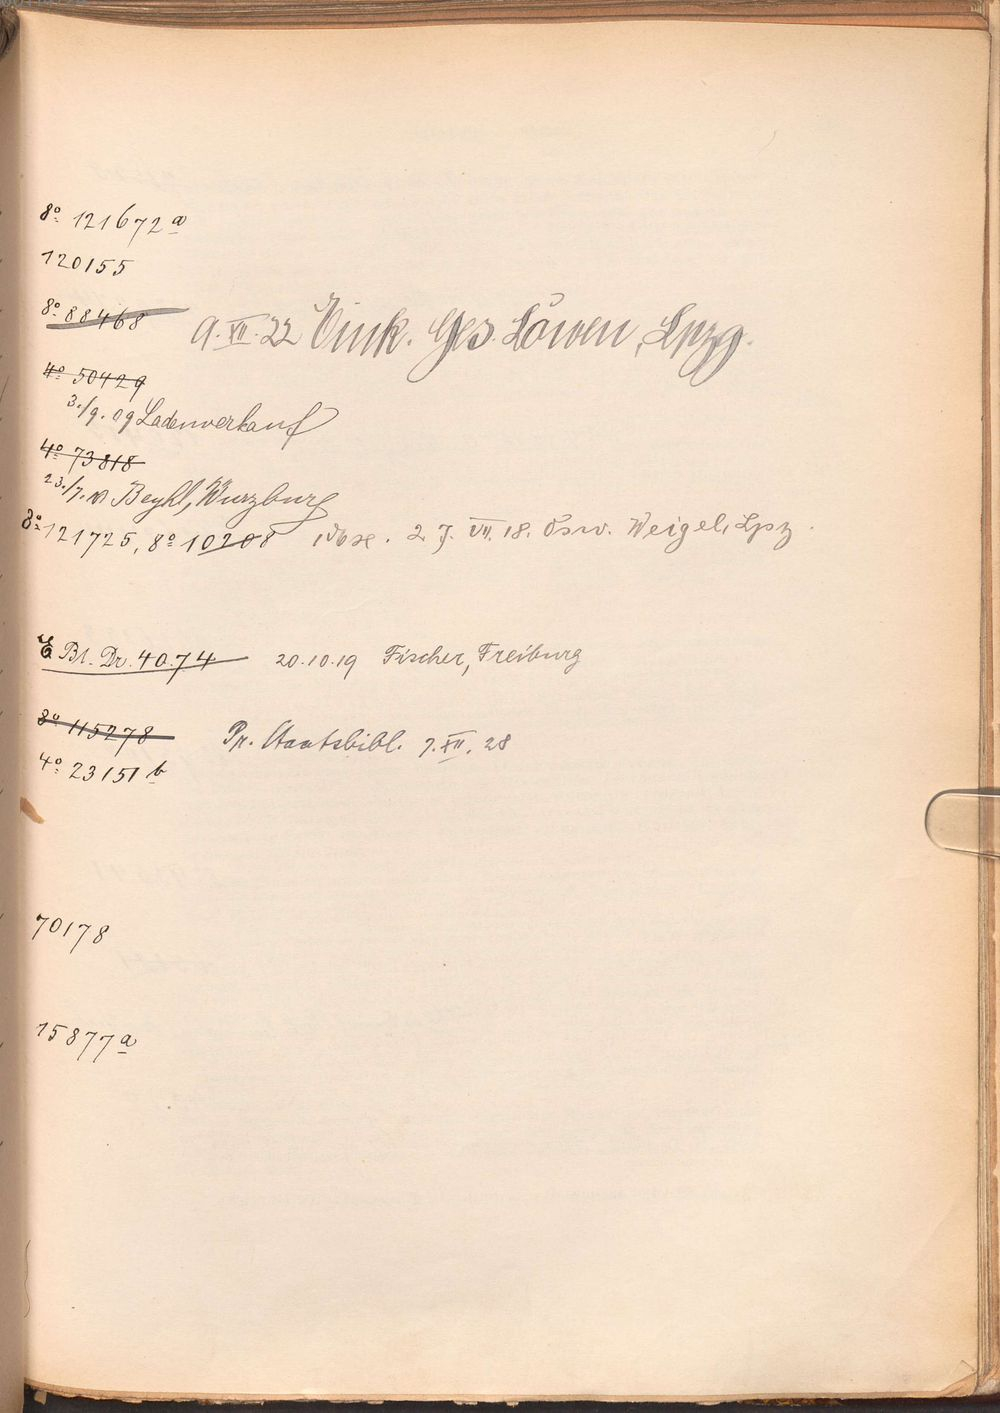 8° 121672a
120155
8° 88468 9.XII.22 Eink. Ges. Löwen, Lpzg.
4° 50429
3./9. 09 Ladenverkauf
4° 73818
23./7. Beyhl, Würzburg
8° 121725, 8° 10208 27. VII. 18. Osw. Weigel, Lpz.
Bl. Dr. 40.74 20.10.19 Fischer, Freiburg
8° 115278 Pr. Staatsbibl. 7.XII.28
4° 23151b
70178
15877a